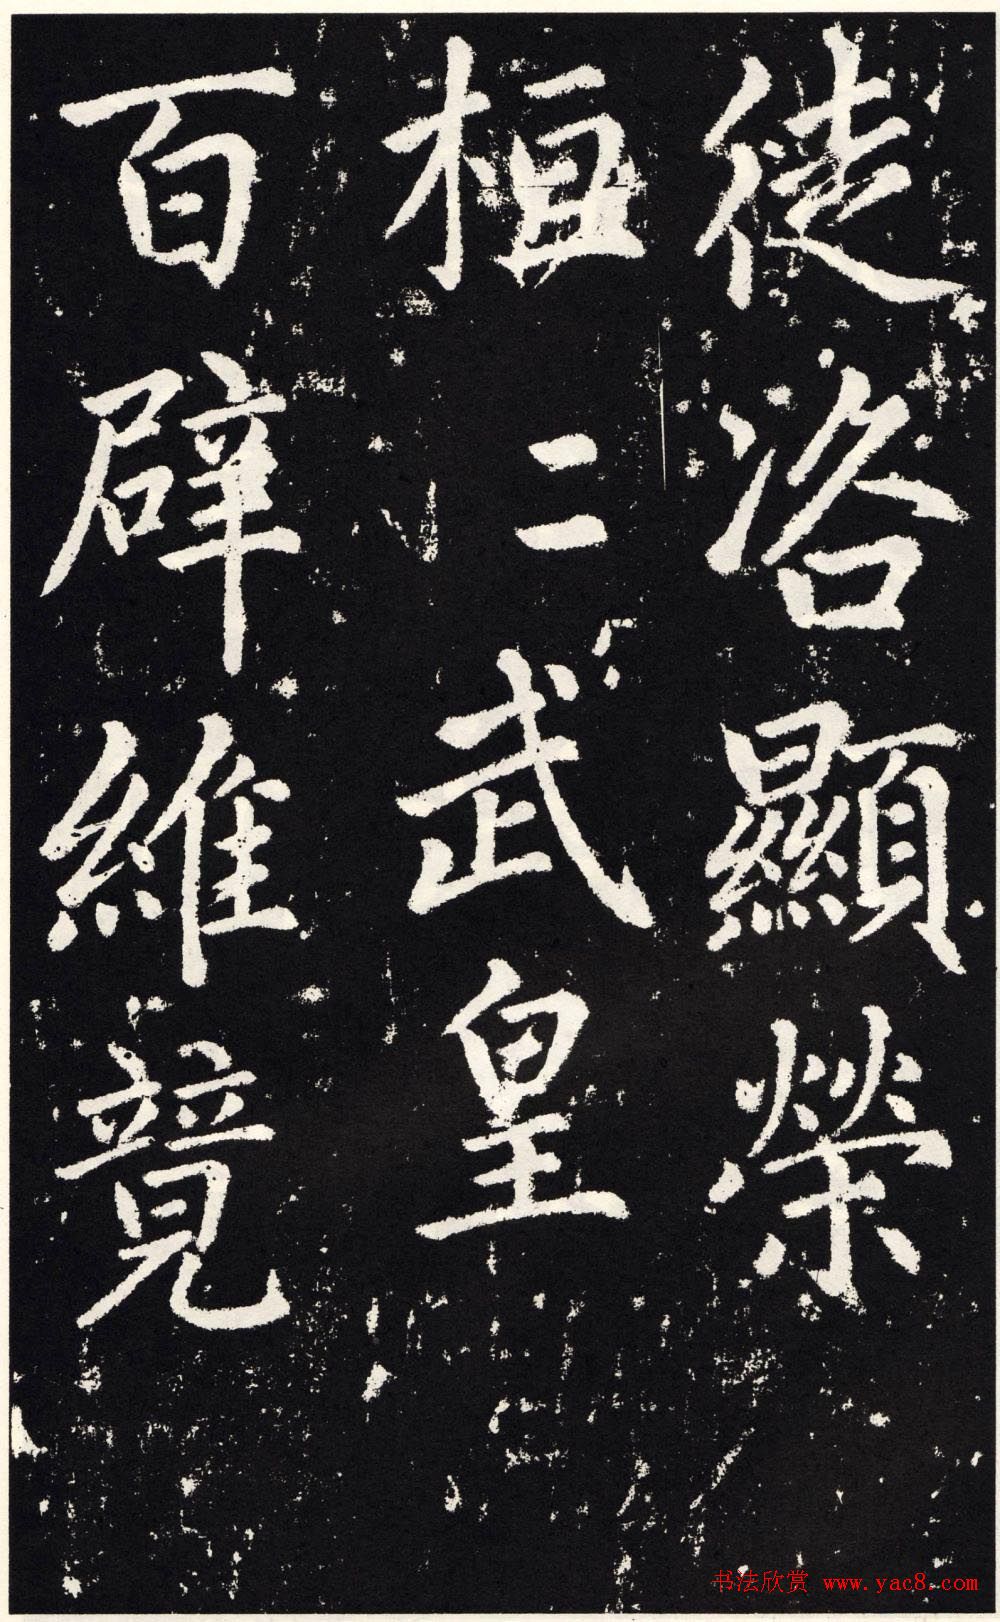 徙洛顯榮
桓二武皇
百辟維競
书法欣赏 www.yac8.com